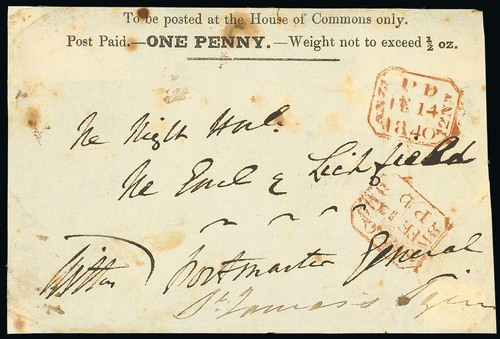 To be posted at the House of Commons only.
Post Paid.—ONE PENNY.—Weight not to exceed ½ oz.
PD
FE 14
1840
The Right Honl.
The Earl of Lichfield
PD
Postmaster General
St. James's Square